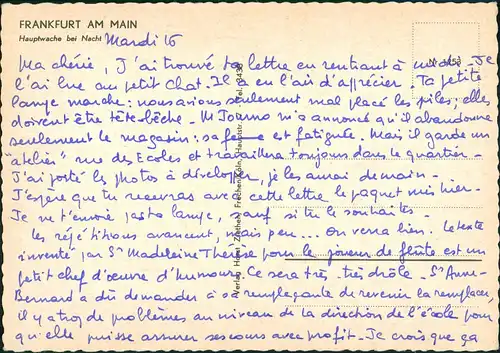 FRANKFURT AM MAIN
Hauptwache bei Nacht
Mardi 16
Ma chérie, J'ai trouvé ta lettre en rentrant à midi. Je
l'ai lue au petit Chat. Il a eu l'air d'apprécier. Ta petite
lampe marche : nous avions seulement mal placé les piles ; elles
doivent être tête-bêche. M m'a annoncé qu'il abandonne
seulement le magasin : sa femme est fatiguée. Mais il garde un
"atelier" rue des Ecoles et travaillera toujours dans le quartier.
J'ai porté les photos à développer, je les aurai demain.
J'espère que tu recevras avec cette lettre le paquet mis hier.
Je ne t'envoie pas ta lampe, sauf si tu le souhaites.
Les répétitions avancent, mais peu... On verra bien. Le texte
inventé par Sr Madeleine Thérèse pour le joueur de flûte est un
petit chef d'œuvre d'humour. Ce sera très, très drôle. Sr Anne-
Bernard a dû demander à sa remplaçante de revenir la remplacer,
il y a trop de problèmes au niveau de la direction de l'école pour
qu'elle puisse assurer ses cours avec profit. Je crois que ça